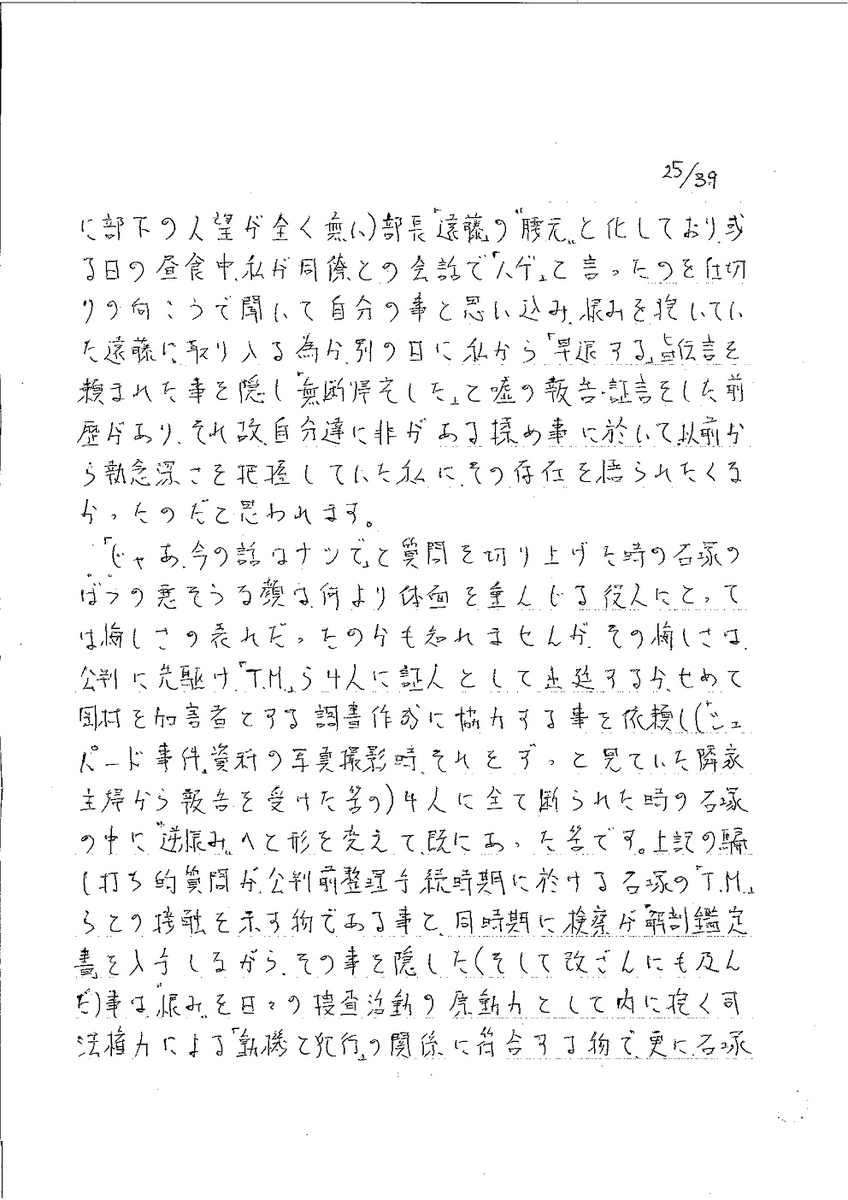 25/39
に部下の人望が全く無い)部長「遠藤」の"腰元"と化しており、或
る日の昼食中、私が同僚との会話で「ハゲ」と言ったのを仕切
りの向こうで聞いて自分の事と思い込み、恨みを抱いてい
た遠藤に取り入る為か、別の日に私から「早退する」旨伝言を
頼まれた事を隠し「無断帰宅した」と嘘の報告・証言をした前
歴があり、それ故、自分達に非がある揉め事に於いて、以前か
ら執念深さを把握していた私に、その存在を悟られたくな
かったのだと思われます。
「じゃあ、今の話はナシで」と質問を切り上げた時の石塚の
ばつの悪そうな顔は、何より体面を重んじる役人にとって
は悔しさの表れだったのかも知れませんが、その悔しさは、
公判に先駆け「T.M.」ら4人に証人として出廷するか、せめて
岡村を加害者とする調書作成に協力する事を依頼し(「シェ
パード事件」資料の写真撮影時、それをずっと見ていた隣家
主婦から報告を受けた筈の)4人に全て断られた時の石塚
の中に"逆恨み"へと形を変えて、既にあった筈です。上記の騙
し打ち的質問が、公判前整理手続時期に於ける石塚の「T.M.」
らとの接触を示す物である事と、同時期に検察が「解剖鑑定
書」を入手しながら、その事を隠した(そして改ざんにも及ん
だ)事は"恨み"を日々の捜査活動の原動力として内に抱く司
法権力による「動機と犯行」の関係に符合する物で、更に、石塚